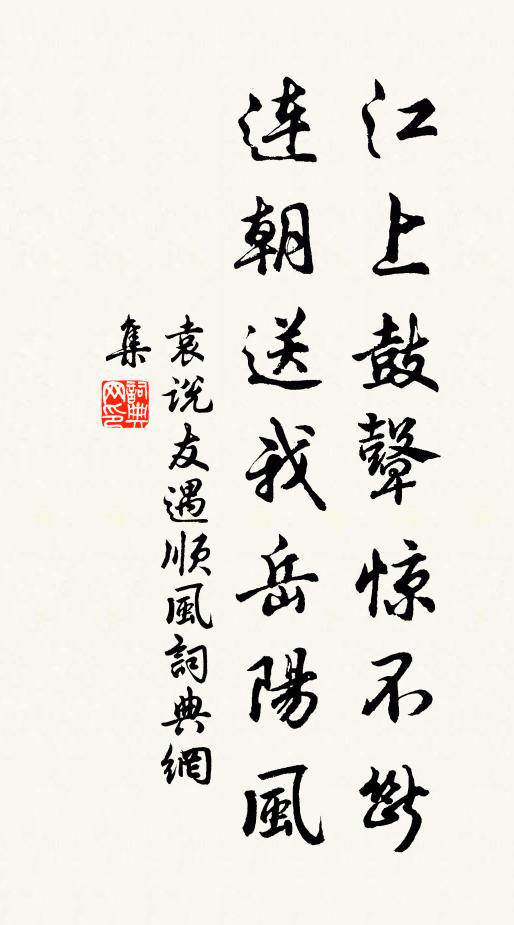 江上鼓鼙惊不斷
連朝送我岳陽風
袁说友遇順風詞典網
集
詞典
网印